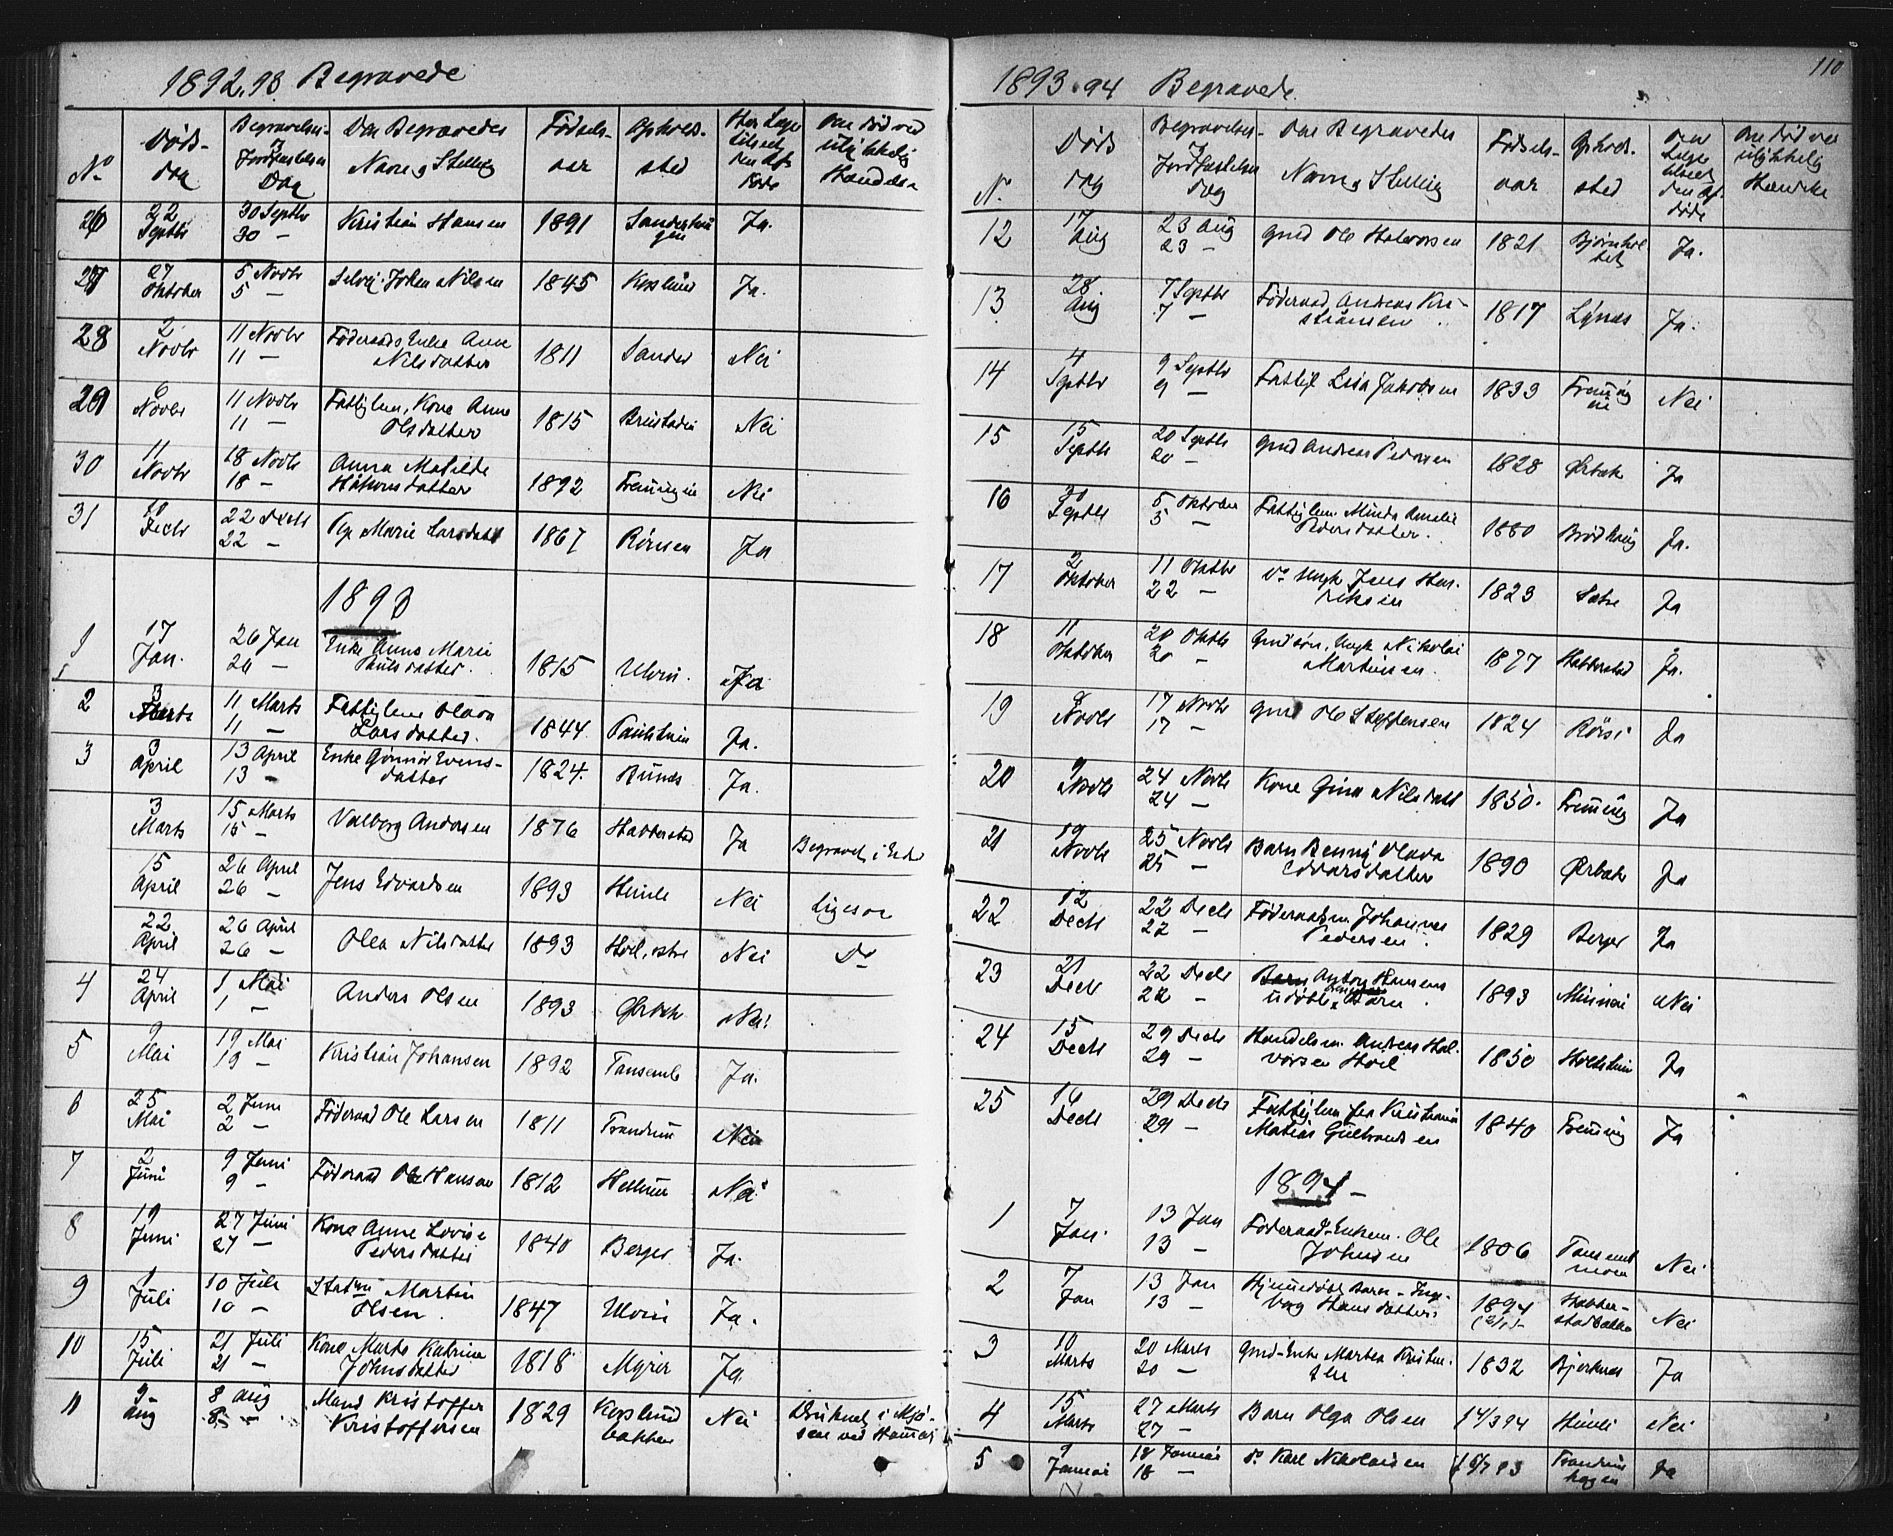 1892.93 Begravede
No
Døds-
dag
Begravelses-
og
Jordfæstelses
Dag
Den Begravedes
Navn og Stilling
Fødsels-
aar
Opholds-
sted
Har Læge
tilseet
den Afdøde
Om død ved
ulykkelig
Hændelse
26 22 Septbr 30 Septbr 30 — Kristian Hansen 1891 Ja.
27 27 Oktober 5 Novbr 5 — Selvei. Johan Nilsen 1845 Korslund Ja.
28 2 Novbr 11 Novbr 11 — Føderaads Enke Anne
Nilsdatter 1811 Sander Nei
29 6 Novbr 11 Novbr 11 — Fattiglem, Kone Anne
Olsdatter 1815 Nei
30 11 Novbr 18 Novbr 18 — Anna Matilde
Håkonsdatter 1892 Nei
31 Decbr 22 Decbr 22 — Pge Marie Larsdatt 1867 Rönsen Ja
1893
1 17 Jan. 26 Jan 26 — Enke Anne Marie
Paulsdatter. 1815 Ulvin. Ja
2 3 Marts 11 Marts 11 — Fattiglem Olava
Larsdatter. 1844 Ja.
3 3 April 13 April 13 — Enke Gunnor Evens-
datter 1824. Bunes Ja.
3 Marts 15 Marts 15 — Valborg Andersen 1876 Habberstad Ja Begravet i Eids
15 April 26 April 26 — Jens Edvardsen 1893 Himle Nei Ligesaa
22 April 26 April 26 — Olea Nilsdatter 1893 Hoel, østre Nei Do
4 24 April 1 Mai 1 — Anders Olsen 1893 Ørbæk Nei
5 9 Mai 19 Mai 19 — Kristian Johansen 1892 Tansemb Ja.
6 25 Mai 2 Juni 2 — Føderaad Ole Larsen 1811 Trandum Nei
7 2 Juni 9 Juni 9 — Føderaad Ole Hansen 1812 Hellum Nei
8 19 Juni 27 Juni 27 — Kone Anne Lovise
Pedersdatter 1840 Berger Ja.
9 1 Juli 10 Juli 10 — Martin
Olsen 1847 Ulvin Ja.
10 15 Juli 21 Juli 21 — Kone Marte Katrine
Johnsdatter 1818 Myrer Ja.
11 Aug 8 Aug 8 — Mand Kristoffer
Kristoffersen 1829 Korslund
bakken Nei Druknet i Mjø-
sen ved Hamar
110
1893.94 Begravede.
N.
Døds
dag
Begravelses-
og
Jordfæstelses
dag
Den Begravedes
Navn og Stilling
Fødsels-
aar
Opholds-
sted
Har
Læge
tilseet
den Af-
døde
Om død ved
ulykkelig
Hændelse
12 17 Aug 23 Aug 23 — Gmd Ole Halvorsen 1821 Ja.
13 28 Aug 7 Septbr 7 — Føderaad, Andreas Kri-
stiansen 1817 Lynæs Ja.
14 4 Septbr 9 Septbr 9 — Fattigl Lisa Jakobsen 1833 Nei
15 15 Septbr 20 Septbr 20 — Gmd Andreas Pedersen 1828 Ørbæk Ja
16 30 Septbr 5 Oktober 5 — Fattiglem Minda Amalie
Pedersdatter. 1880 Brødhaug Ja.
17 2 Oktober 11 Oktbr 22 — Do Ungk Jens Hen-
riksen 1823 Sætre Ja
18 11 Oktober 20 Oktbr 20 — Gmdsøn, Ungk Nikolai
Martinsen. 1877 Habberstad Ja.
19 8 Novbr 17 Novbr 17 — Gmd Ole Steffensen 1824 Rörsi Ja
20 9 Novbr 24 Novbr 24 — Kone Gina Nilsdatt 1850. Ja
21 19 Novbr 25 Novbr 25 — Barn Benny Olava
Edvarsdatter 1890 Ørbæk Ja
22 12 Decb 22 Decb 22 — Føderaadsm. Johannes
Pedersen 1829 Berger Ja
23 21 Decb 22 Decb 22 — Barn Hansens
udøbte Barn 1893 Nei
24 15 Decb 29 Decb 29 — Handelsm. Andreas Hal-
vorsen Hoel 1850 Ja
25 16 Decb 29 Decb 29 — Fattiglem fra Kristiania
Matias Gulbrandsen 1840 Ja
1894
1 7 Jan. 13 Jan 13 — Føderaads-Enkem. Ole
Johnsen 1806 Tansemb
moen Nei
2 7 Jan 13 Jan 13 — Hjemmedøbt Barn - Inge-
borg Hansdatter. 1894 Habber-
stadbakke Nei
3 10 Marts 20 Marts 20 — Gmd-Enke Martea Kristen-
sen 1832 Bjerknes Ja
4 15 Marts 27 Marts 27 — Barn Olga Olsen 14/3 94 Himle Nei
5 9 Januar 18 Januar 18 — do Karl Nikolaisen Trandum
hagen Ja